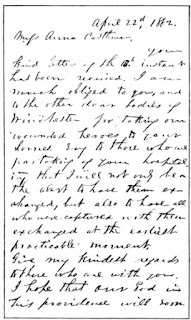 April 22d, 1862.
Miss Anna
your
kind letter of the instant
has been received. I am
much obliged to you, and
to the other dear ladies of
Winchester for taking our
wounded heroes to your
homes. Say to those who are
partaking of your hospital
ity that I will not only be on
the alert to have them ex
changed, but also to have all
who were captured with them
exchanged at the earliest
practicable moment.
Give my kindest regards
to those who are with you.
I hope that our God in
his providence will soon